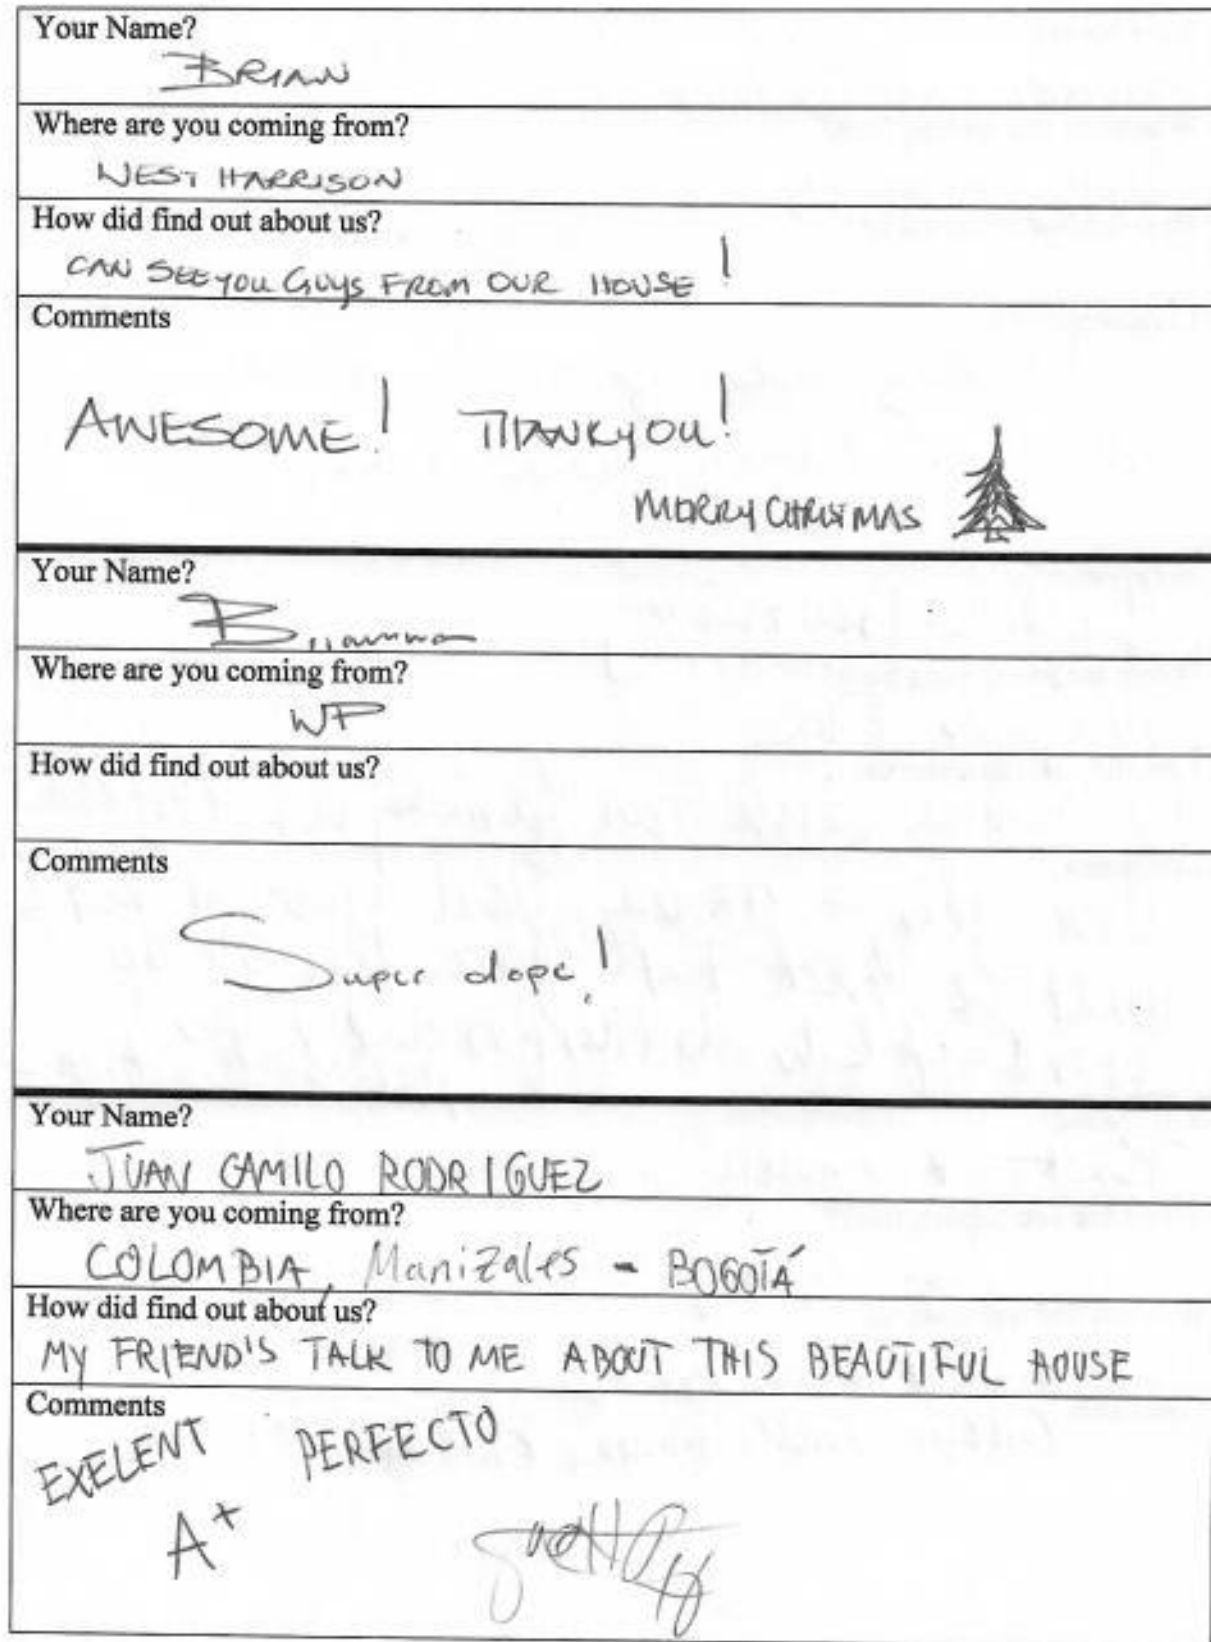 Your Name?
BRIAN
Where are you coming from?
WEST HARRISON
How did find out about us?
CAN SEE YOU GUYS FROM OUR HOUSE!
Comments
AWESOME! THANKYOU!
MERRY CHRISTMAS
Your Name?
Where are you coming from?
WP
How did find out about us?
Comments
Super dope!
Your Name?
JUAN CAMILO RODRIGUEZ
Where are you coming from?
COLOMBIA, Manizales - BOGOTÁ
How did find out about us?
MY FRIEND'S TALK TO ME ABOUT THIS BEAUTIFUL HOUSE
Comments
EXELENT PERFECTO
A+